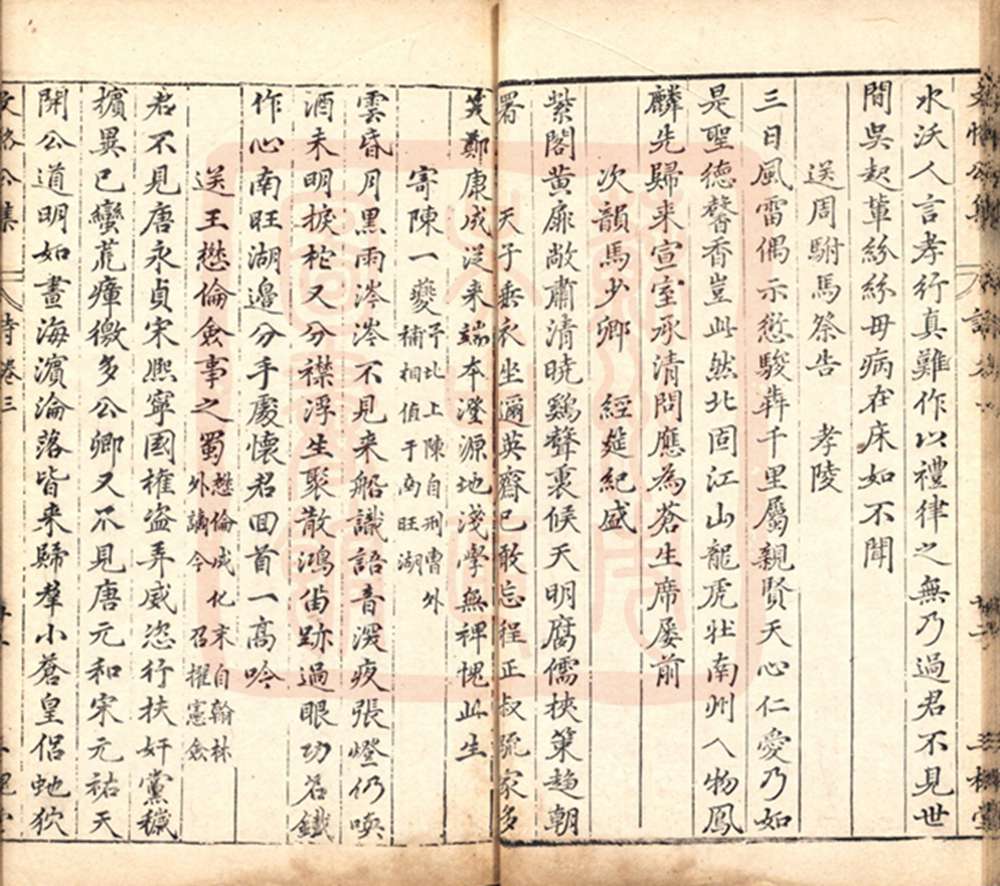 水沃人言孝行真難作以禮律之無乃過君不見世
間吳起輩紛紛母病在床如不聞
送周駙馬祭告　孝陵
三日風雷偶示愆駿犇千里屬親賢天心仁愛乃如
是聖德馨香豈此然北固江山龍虎壯南州人物鳳
麟先歸来宣室承清問應為蒼生席屡前
次韻馬少卿　經筵紀盛
紫閣黃扉敞肅清曉鷄聲裏候天明腐儒挾策趋朝
署　天子垂衣坐邇英齊已敢忘程正叔䟽家多
笑鄭康成従来端本澄源地淺學無裨愧此生
寄陳一夔予北上陳自刑曹外補相値于南旺湖
雲昏月黒雨涔涔不見来船識語音漫疲張燈仍喚
酒未明捩柁又分襟浮生聚散鴻留跡過眼功名鐵
作心南旺湖邉分手處懐君回首一高吟
送王懋倫僉事之蜀懋倫成化末自翰林外謫今　召擢憲僉
君不見唐永貞宋熈寧國權盗弄威恣行扶奸黨穢
擯異已蠻荒瘴徼多公卿又不見唐元和宋元祐天
開公道明如晝海濵淪落皆来歸羣小蒼皇侣虵狖
詩卷三